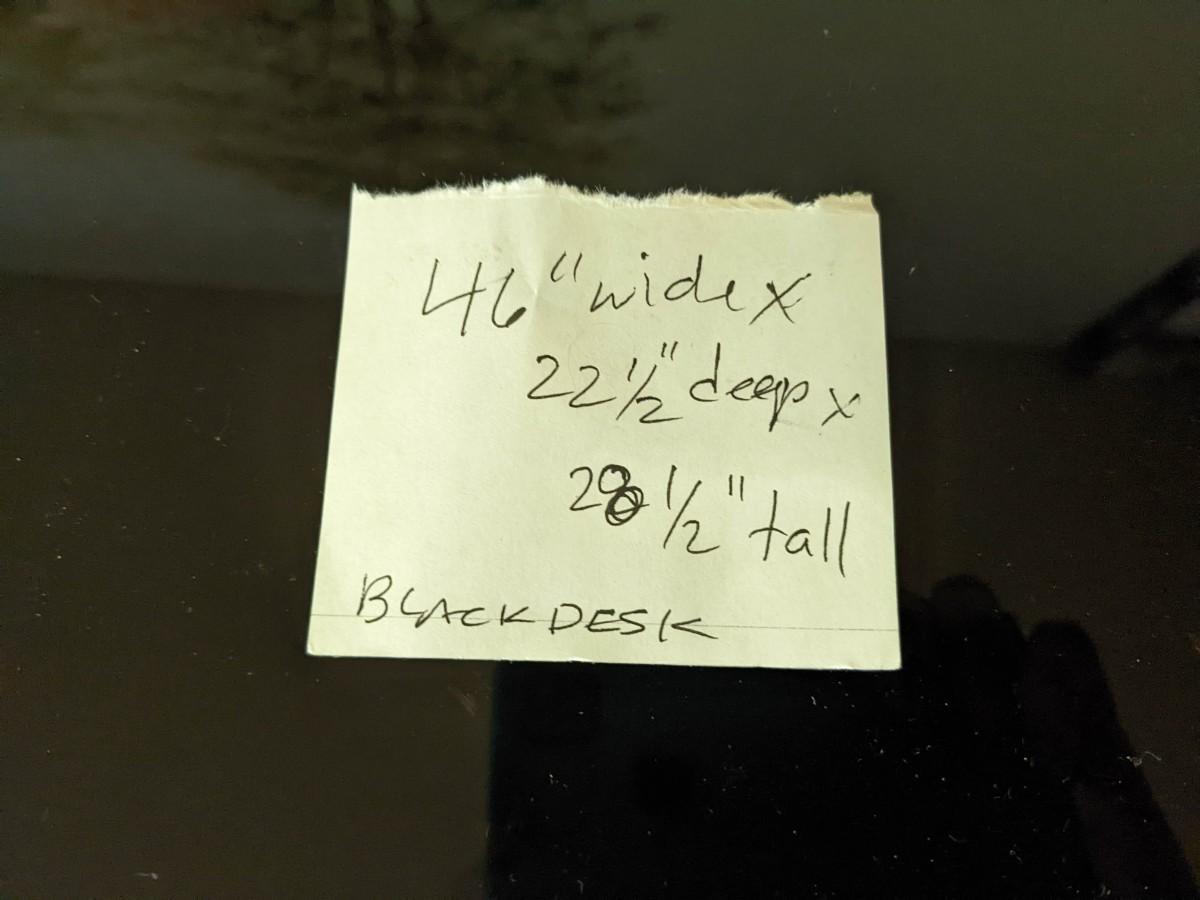 46" wide x
22 1/2" deep x
28 1/2" tall
BLACK DESK